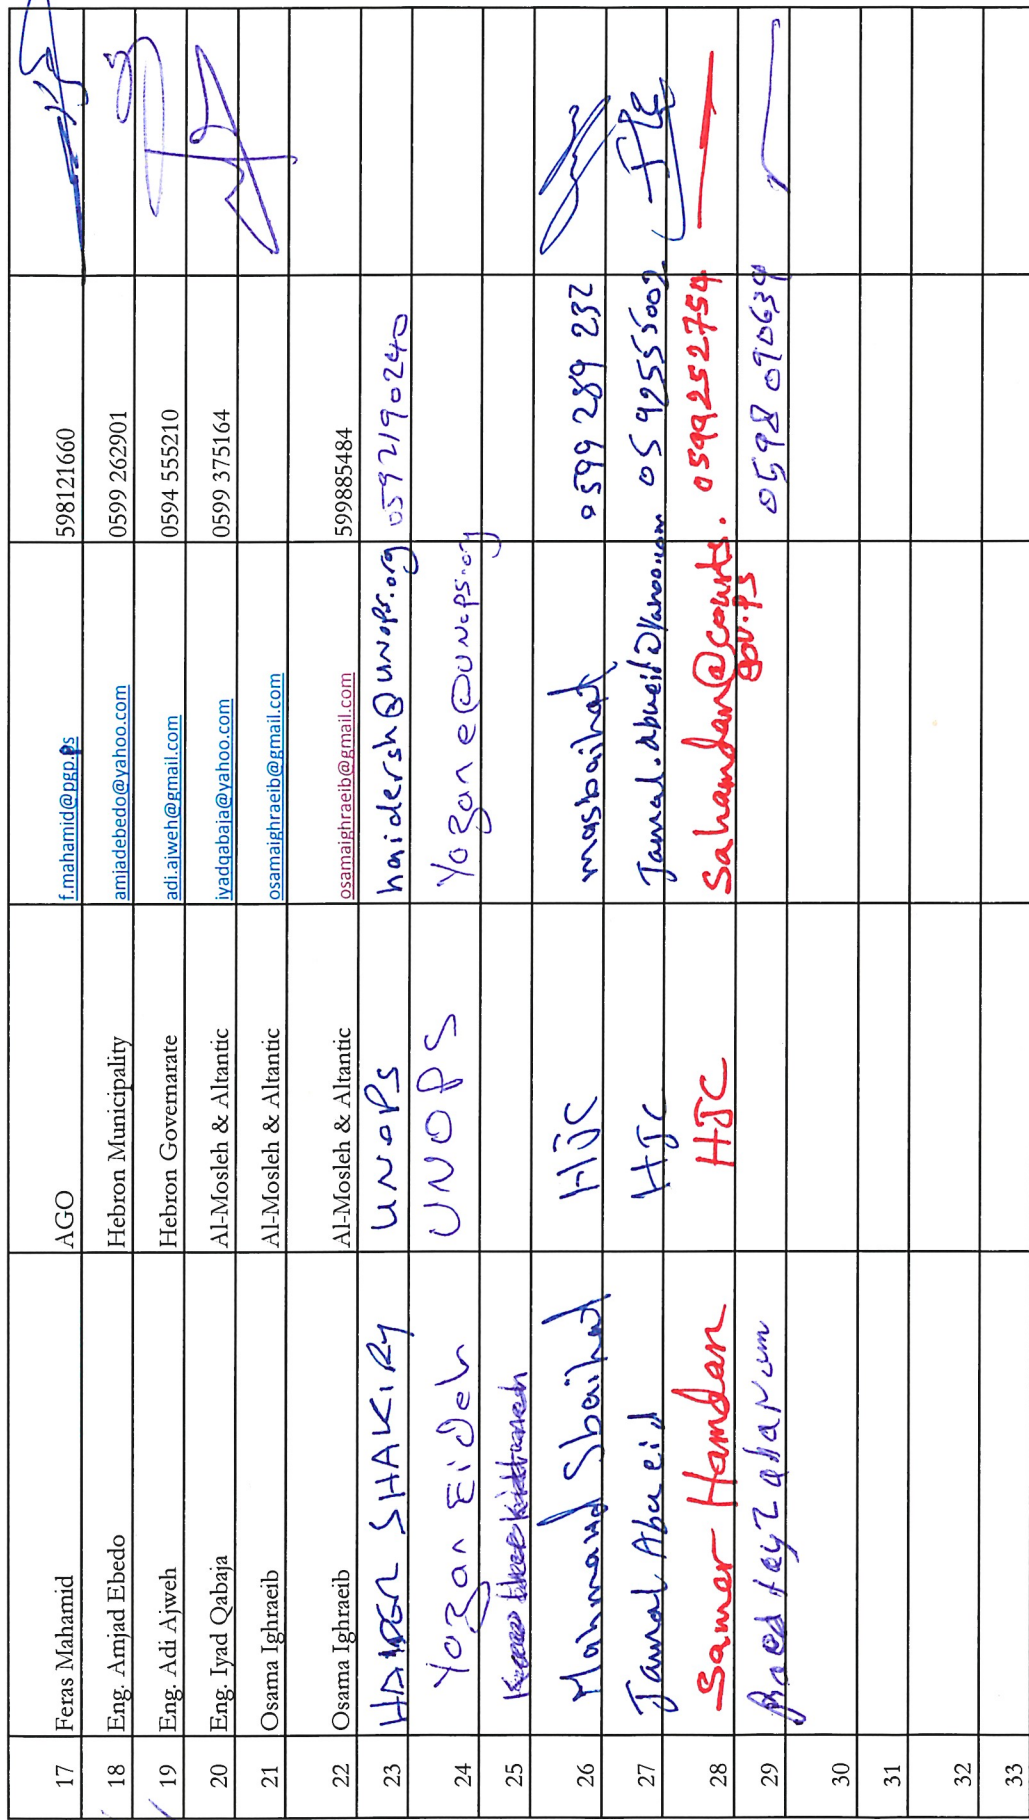 17 Feras Mahamid AGO f.mahamid@pgp.ps 598121660
18 Eng. Amjad Ebedo Hebron Municipality amjadebedo@yahoo.com 0599 262901
19 Eng. Adi Ajweh Hebron Governarate adi.ajweh@gmail.com 0594 555210
20 Eng. Iyad Qabaja Al-Mosleh & Altantic iyadqabaja@yahoo.com 0599 375164
21 Osama Ighraeib Al-Mosleh & Altantic osamaighraeib@gmail.com
22 Osama Ighraeib Al-Mosleh & Altantic osamaighraeib@gmail.com 599885484
23 HAIDER SHAKIRY UNOPS haidersh@unops.org 0592190240
24 Yozan Eideh UNOPS Yozane@unops.org
25
26 Mahmoud Sbaihat HJC masbaihat 0599 289 232
27 Jamal Abu eid HJC Jamal.abueid@yahoo.com 0592555002
28 Samer Hamdan HJC Sahamdan@courts.gov.ps 0599252754
29 0598 090634
30
31
32
33